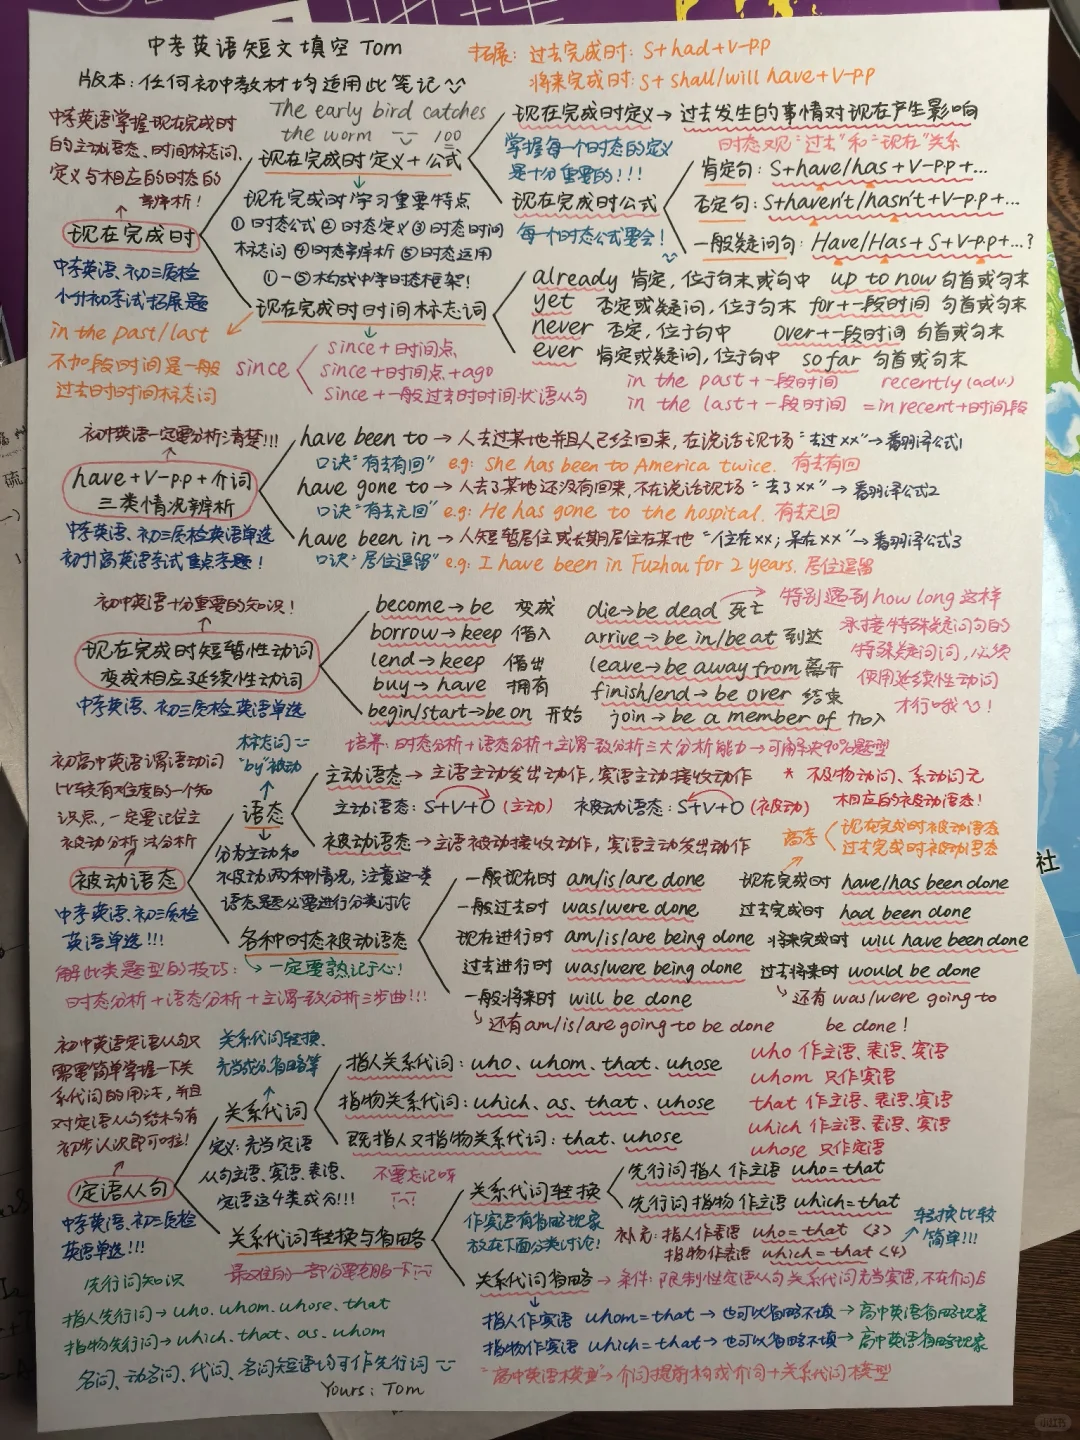 中考英语短文填空 Tom
拓展: 过去完成时: S+had+V-PP
将来完成时: S+shall/will have+V-PP
版本: 任何初中教材均适用此笔记
The early bird catches
the worm 100
中考英语掌握现在完成时
的主动语态、时间标志词,
定义与相应的时态的
辨析!
现在完成时
中考英语、初三质检
小升初考试拓展题
现在完成时定义+公式
现在完成时学习重要特点
①时态公式②时态定义③时态时间
标志词④时态辨析⑤时态运用
①-⑤构成中学时态框架!
现在完成时定义→过去发生的事情对现在产生影响
时态观"过去"和"现在"关系
掌握每一个时态的定义
是十分重要的!!!
现在完成时公式
每一个时态公式要会!
肯定句: S+have/has+V-PP+...
否定句: S+haven't/hasn't+V-P.P+...
一般疑问句: Have/Has+S+V-P.P+...?
现在完成时时间标志词
already 肯定, 位于句末或句中 up to now 句首或句末
yet 否定或疑问, 位于句末 for+一段时间 句首或句末
never 否定, 位于句中 Over+一段时间 句首或句末
ever 肯定或疑问, 位于句中 so far 句首或句末
in the past+一段时间 recently (adv.)
in the last+一段时间 =in recent+时间段
in the past/last
不加段时间是一般
过去时时间标志词
since
since+时间点
since+时间点+ago
since+一般过去时时间状语从句
初中英语一定要分析清楚!!!
have+V-PP+介词
三类情况辨析
中考英语、初三质检英语单选
初升高英语考试重点考题!
have been to→人去过某地并且人已经回来, 在说话现场 "去过××"→翻译公式1
口诀"有去有回" e.g: She has been to America twice. 有去有回
have gone to→人去了某地还没有回来, 不在说话现场 "去了××"→翻译公式2
口诀"有去无回" e.g: He has gone to the hospital. 有去无回
have been in→人短暂居住或长期居住在某地 "住在××; 呆在××"→翻译公式3
口诀"居住逗留" e.g: I have been in Fuzhou for 2 years. 居住逗留
初中英语十分重要的知识!
现在完成时短暂性动词
变成相应延续性动词
中考英语、初三质检英语单选
become→be 变成
borrow→keep 借入
lend→keep 借出
buy→have 拥有
begin/start→be on 开始
die→be dead 死亡
arrive→be in/be at 到达
leave→be away from 离开
finish/end→be over 结束
join→be a member of 加入
特别遇到how long这样
承接特殊疑问句的
特殊疑问词, 必须
使用延续性动词
才行哦!
培养: 时态分析+语态分析+主谓一致分析三大分析能力→可解决90%题型
初高中英语谓语动词
比较有难度的一个知
识点, 一定要记住主
被动分析法分析
被动语态
中考英语、初三质检
英语单选!!!
解此类题型的技巧:
时态分析+语态分析+主谓一致分析三步曲!!!
标志词
"by"被动
语态
分为主动和
被动两种情况, 注意这一类
语态题必要进行分类讨论
主动语态→主语主动发出动作, 宾语主动接收动作
主动语态: S+V+O (主动) 被动语态: S+V+O (被动)
被动语态→主语被动接收动作, 宾语主动发出动作
* 不及物动词、系动词无
相应的被动语态!
高考
现在完成时被动语态
过去完成时被动语态
各种时态被动语态
一定要熟记于心!
一般现在时 am/is/are done 现在完成时 have/has been done
一般过去时 was/were done 过去完成时 had been done
现在进行时 am/is/are being done 将来完成时 will have been done
过去进行时 was/were being done 过去将来时 would be done
一般将来时 will be done 还有 was/were going to
还有am/is/are going to be done be done!
初中英语定语从句只
需要简单掌握一下关
系代词的用法, 并且
对定语从句结构有
初步认识即可啦!
定语从句
中考英语、初三质检
英语单选!!!
关系代词转换、
充当成分、省略等
关系代词
定义: 充当定语
从句主语、宾语、表语、
定语这4类成分!!!
不要忘记呀
指人关系代词: who、whom、that、whose
指物关系代词: which、as、that、whose
既指人又指物关系代词: that、whose
who 作主语、表语、宾语
whom 只作宾语
that 作主语、表语、宾语
which 作主语、表语、宾语
whose 只作定语
关系代词转换与省略
最难的一部分要克服一下
关系代词转换
作宾语有省略现象
放在下面分类讨论!
先行词指人 作主语 who=that
先行词指物 作主语 which=that
补充: 指人作表语 who=that <3>
指物作表语 which=that <4>
转换比较
简单!!!
关系代词省略→条件: 限制性定语从句关系代词充当宾语, 不在介词后
指人作宾语 whom=that→也可以省略不填→高中英语省略现象
指物作宾语 which=that→也可以省略不填→高中英语省略现象
"高中英语模型"→介词提前构成介词+关系代词模型
先行词知识
指人先行词→who.whom.whose.that
指物先行词→which.that.as.whom
名词、动名词、代词、名词短语均可作先行词
Yours: Tom
社
小红书